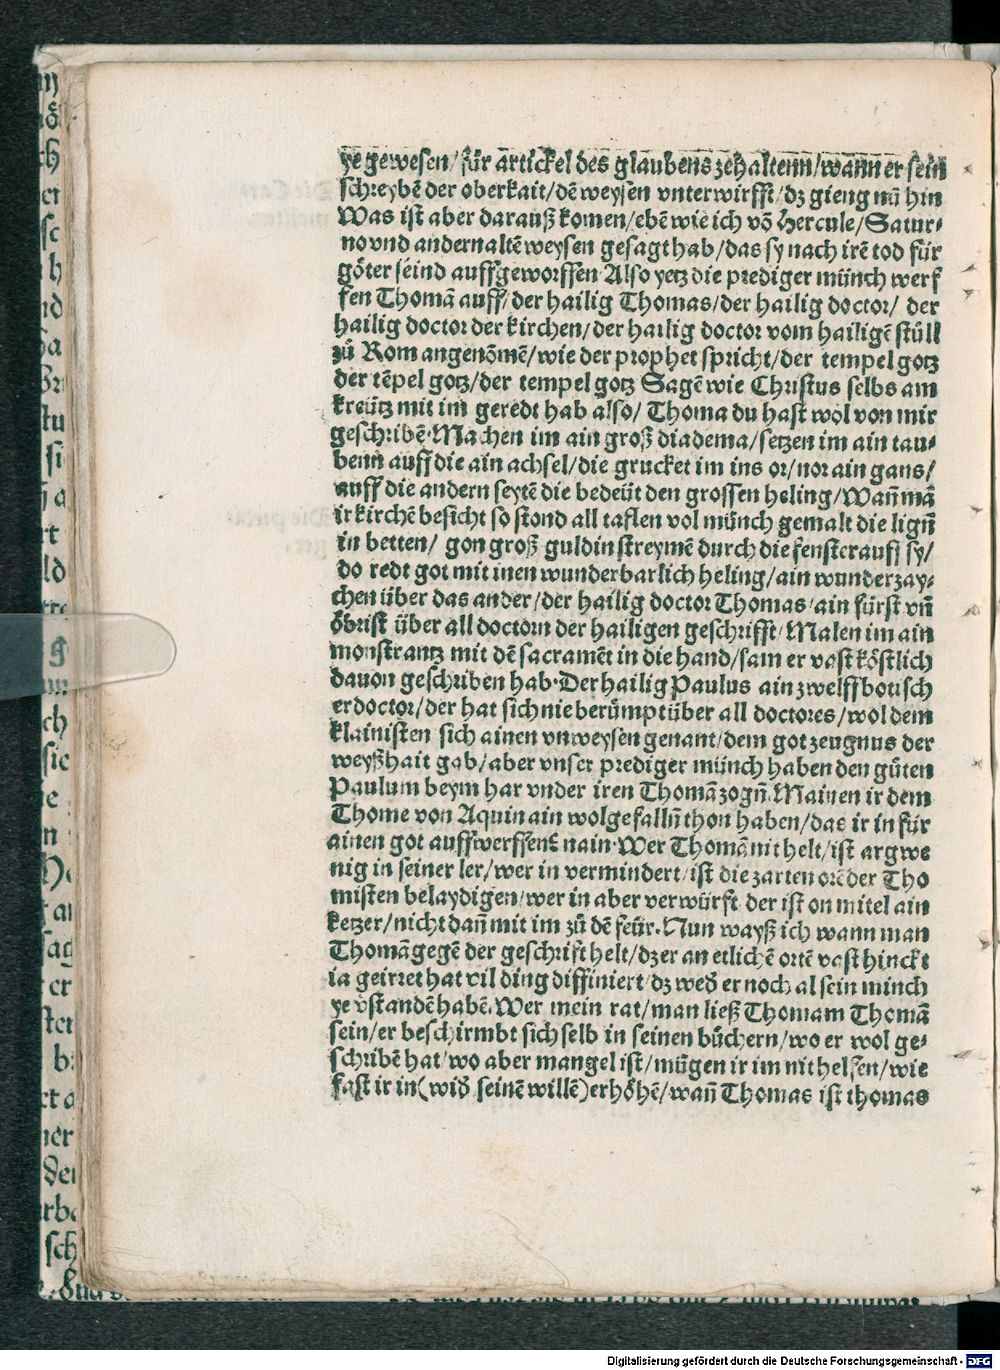 ye gewesen/ für artickel des glaubens zehaltenn/wann er sein
schreybē der oberkait/dē weysen vnterwirfft/dz gieng nū hin
Was ist aber darauß komen/ebē wie ich vō Hercule/Satur⸗
no vnd andern altē weysen gesagt hab/das sy nach irē tod für
göter seind auffgeworffen Also yetz die prediger münch werf
fen Thomā auff/der hailig Thomas/der hailig doctor/ der
hailig doctor der kirchen/der hailig doctor vom hailigē stůll
zů Rom angenōmē/wie der prophet spricht/der tempel gotz
der tēpel gotz/der tempel gotz Sagē wie Christus selbs am
kreütz mit im geredt hab also/ Thoma du hast wol von mir
geschribē. Machen im ain groß diadema/setzen im ain tau⸗
benn auff die ain achsel/die grucket im ins or/nor ain gans/
auff die andern seytē die bedeüt den grossen heling/Wañ mā
ir kirchē besicht so stond all taflen vol münch gemalt die ligñ
in betten/ gon groß guldin streymē durch die fenster auff sy/
do redt got mit inen wunderbarlich heling/ain wunderzay⸗
chen über das ander/der hailig doctor Thomas/ain fürst vñ
öbrist über all doctorn der hailigen geschrifft/Malen im ain
monstrantz mit dē sacramēt in die hand/sam er vast köstlich
dauon geschriben hab. Der hailig Paulus ain zwelffbotisch
er doctor/der hat sich nie berümpt über all doctores/wol dem
klainisten sich ainen vnweysen genant/dem got zeugnus der
weyßhait gab/aber vnser prediger münch haben den gůten
Paulum beym har vnder iren Thomā zogñ. Mainen ir dem
Thome von Aquin ain wolgefallñ thon haben/das ir in für
ainen got auffwerffent nain. Wer Thomā nit helt/ist argwe
nig in seiner ler/wer in vermindert/ist die zarten orē der Tho
misten belaydigen/wer in aber verwürft der ist on mitel ain
ketzer/nicht dañ mit im zů dē feür. Nun wayß ich wann man
Thomā gegē der geschrift helt/dz er an etlichē ortē vast hinckt
ia geirret hat vil ding diffiniert/dz wed̄ er noch al sein münch
ye v̄standē habē. Wer mein rat/man ließ Thomam Thomā
sein/er beschirmbt sich selb in seinen bůchern/wo er wol ge⸗
schribē hat/wo aber mangel ist/mügen ir im nit helffen/wie
fast ir in (wid̄ seinē willē) erhöhē/wañ Thomas ist thomas
Digitalisierung gefördert durch die Deutsche Forschungsgemeinschaft - DFG